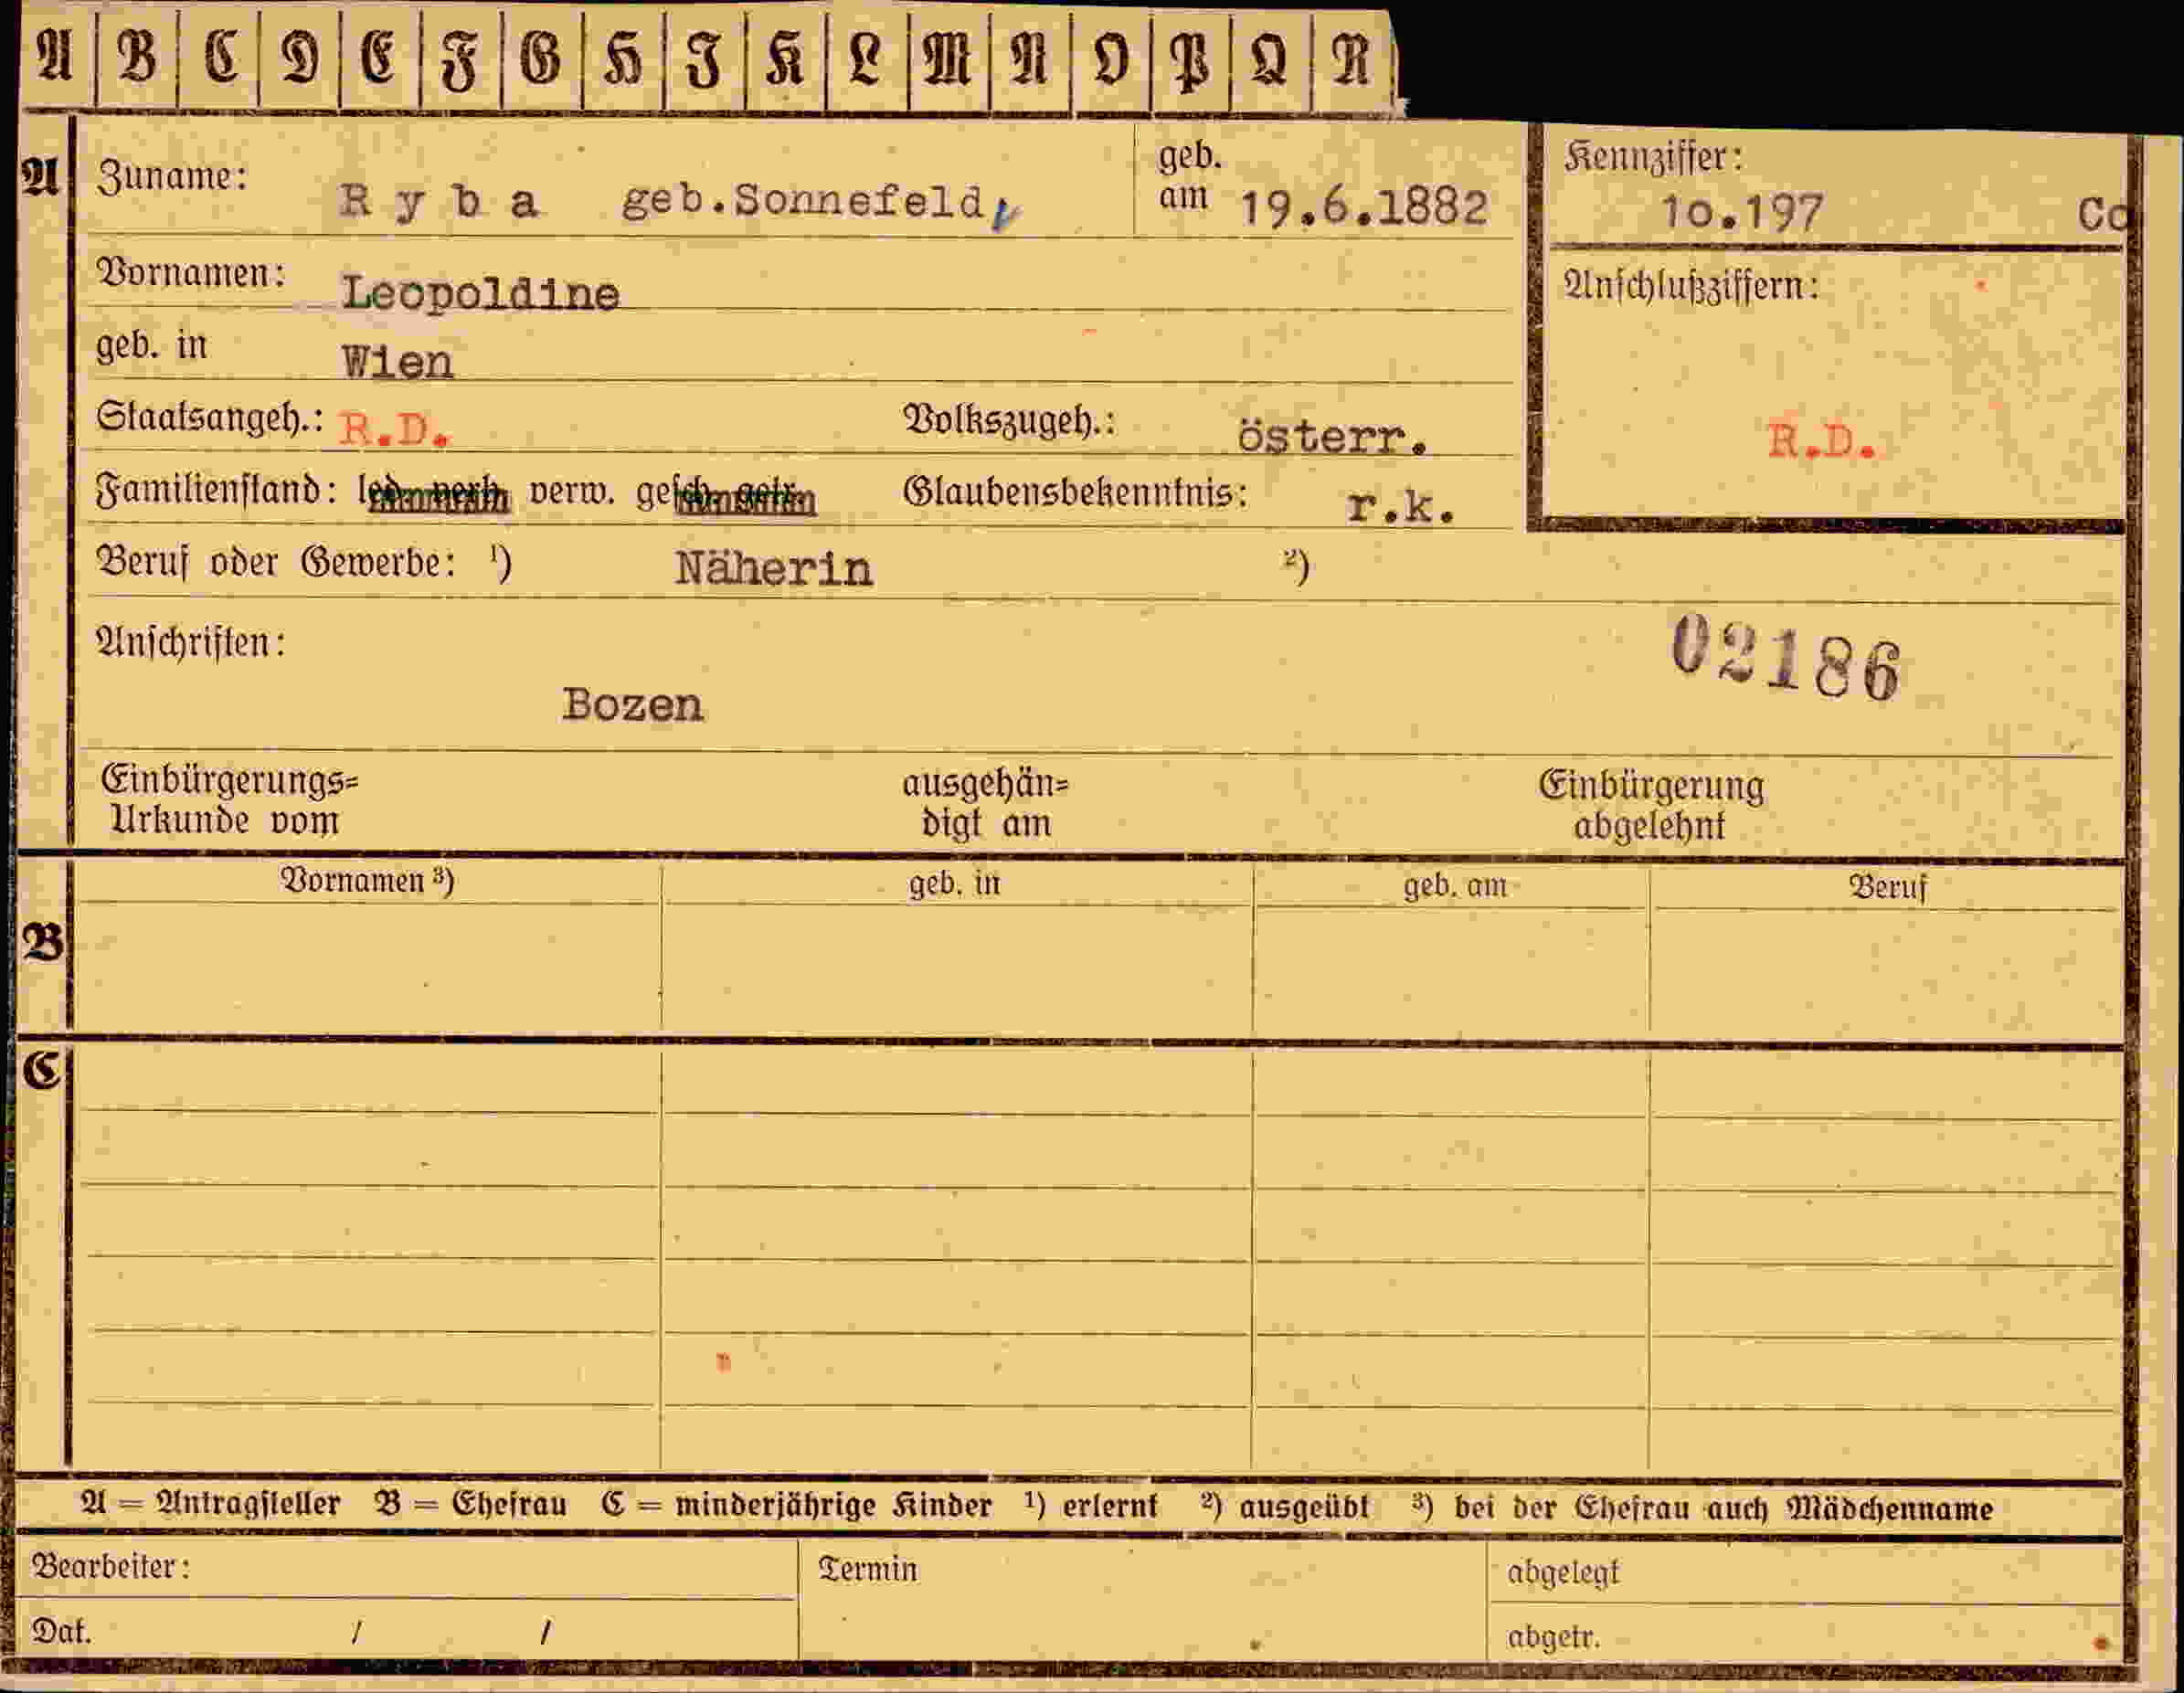 A B C D E F G H I K L M N O P Q R
A Zuname: Ryba geb.Sonnefeld, geb. am 19.6.1882
Kennziffer:
1o.197 Co
Vornamen: Leopoldine
Anschlußziffern:
geb. in Wien
Staatsangeh.: R.D. Volkszugeh.: österr.
R.D.
Familienstand: led. verh. verw. gesch. getr. Glaubensbekenntnis: r.k.
Beruf oder Gewerbe: ¹) Näherin ²)
Anschriften:
02186
Bozen
Einbürgerungs= ausgehän= Einbürgerung
Urkunde vom digt am abgelehnt
B Vornamen ³) geb. in geb. am Beruf
C
A = Antragsteller B = Ehefrau C = minderjährige Kinder ¹) erlernt ²) ausgeübt ³) bei der Ehefrau auch Mädchenname
Bearbeiter: Termin abgelegt
Dat. / / abgetr.